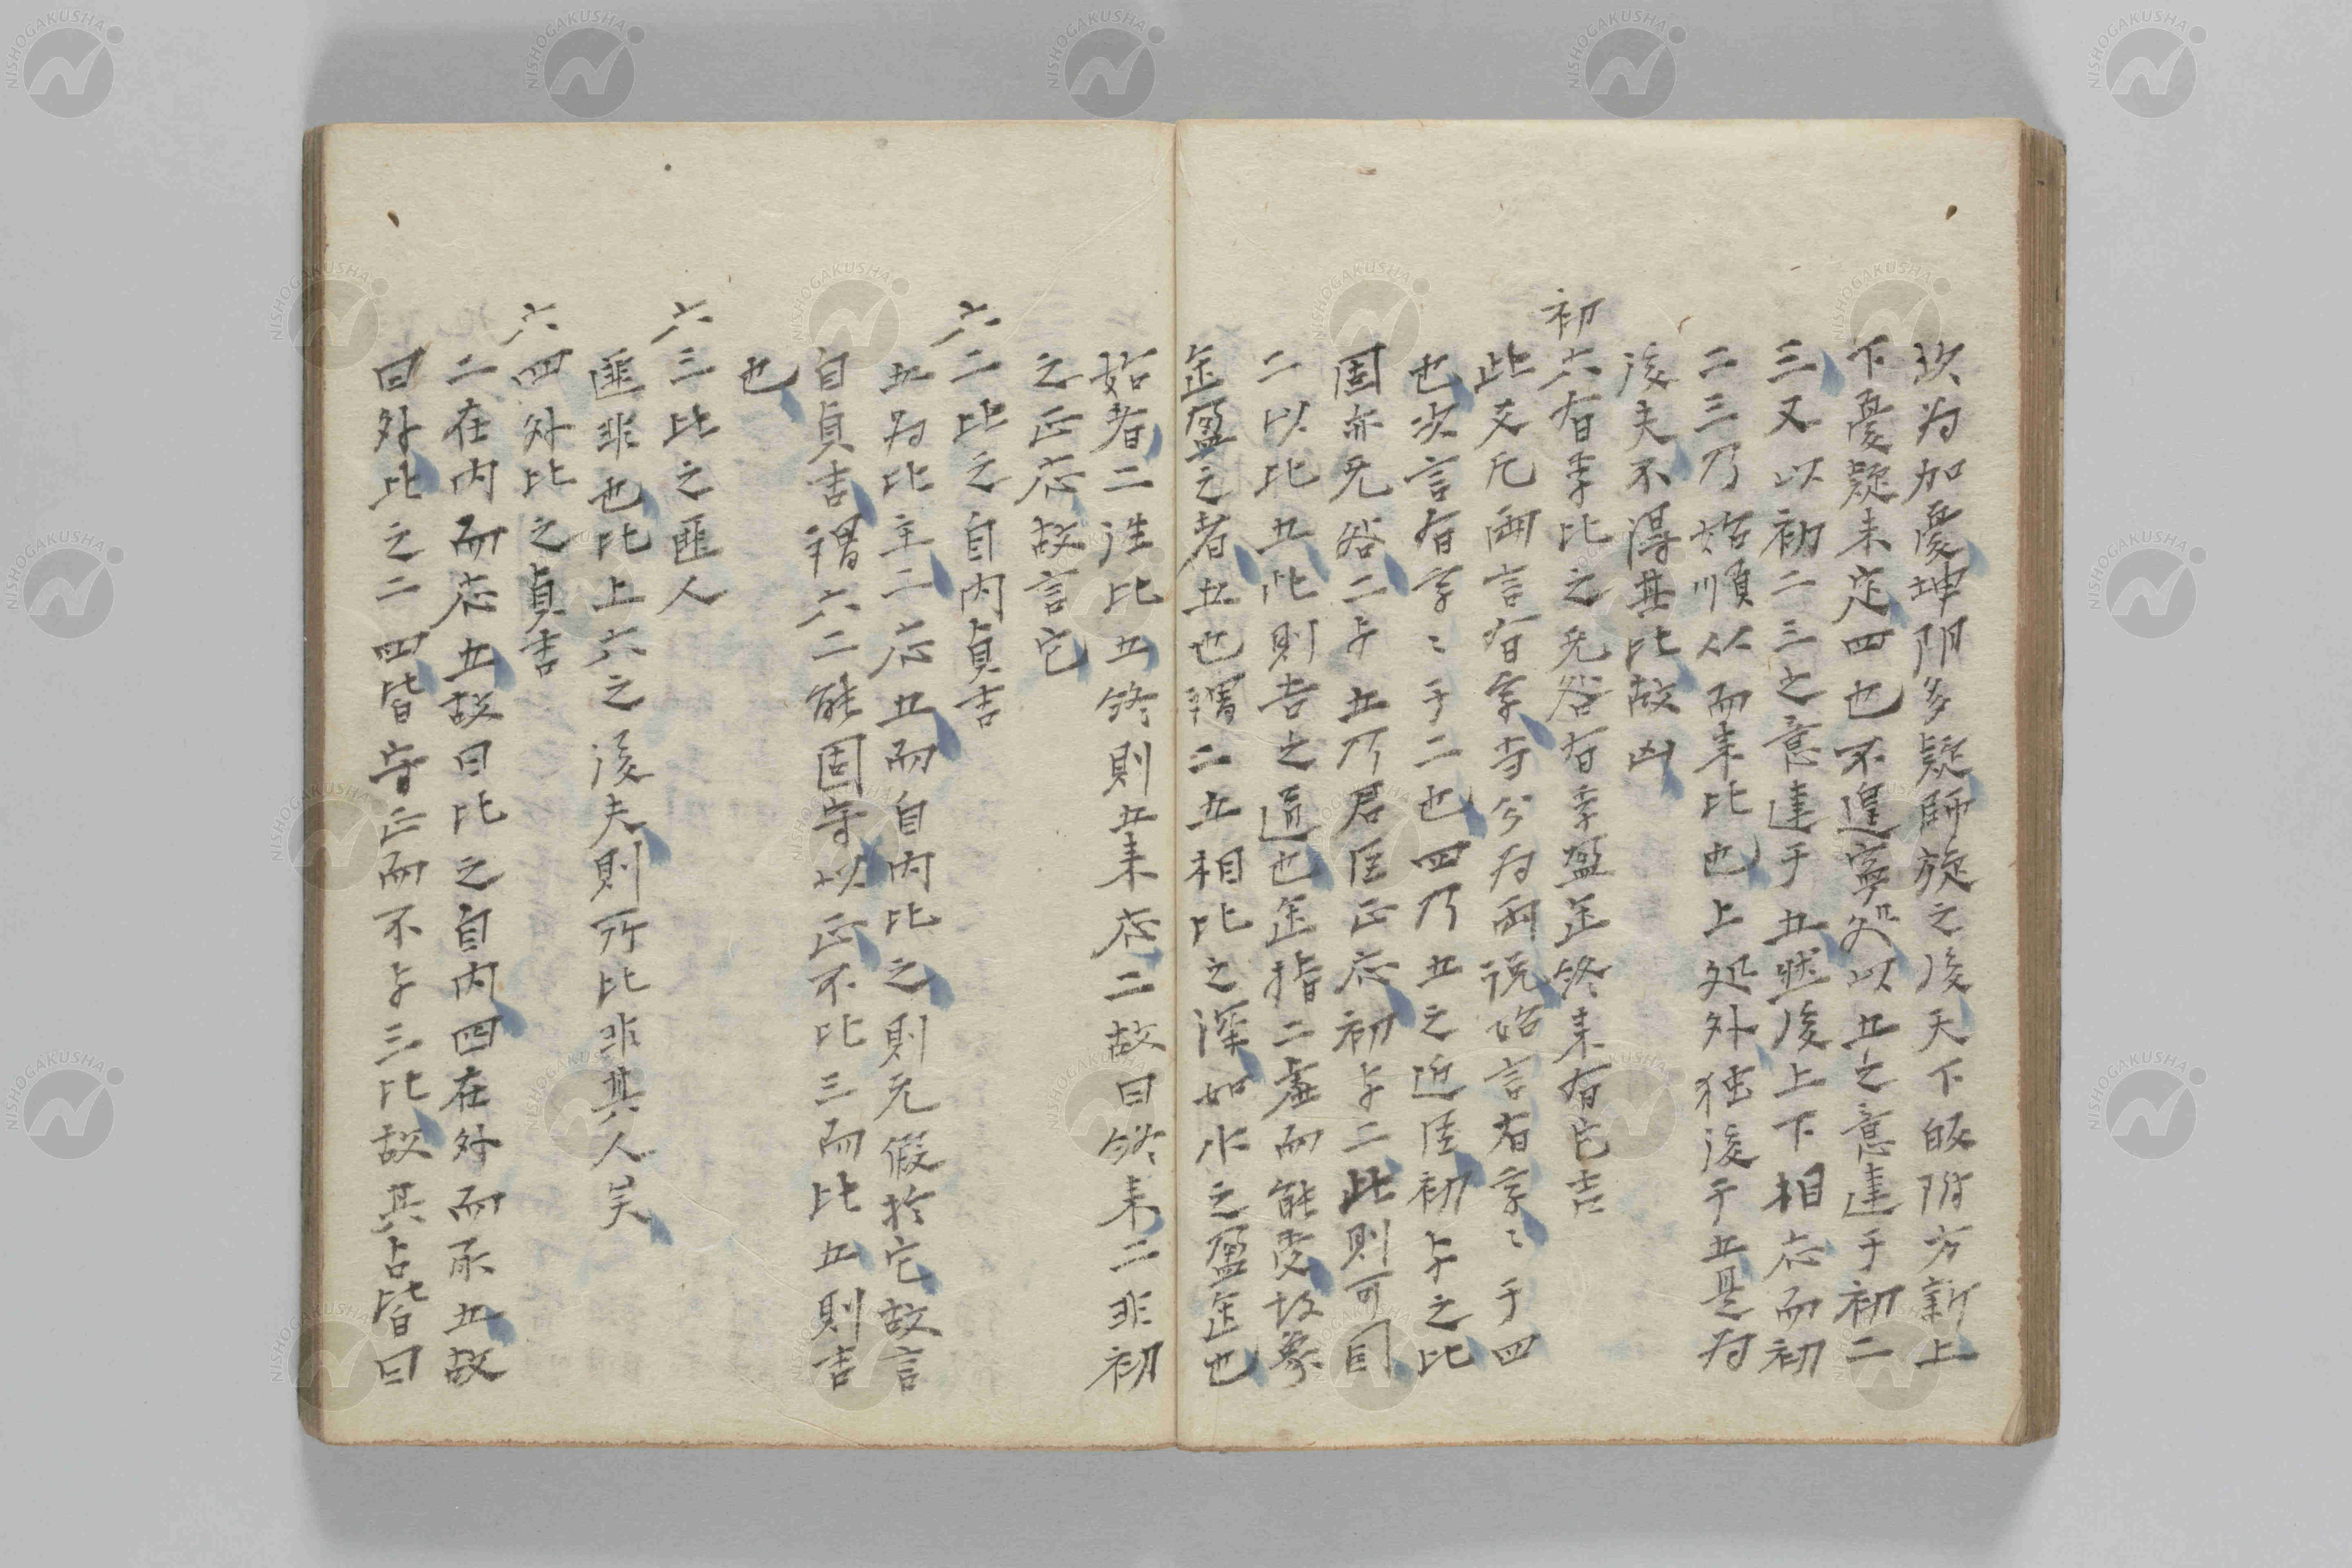 坎为加憂坤阴多疑師旅之後天下皈附方新上
下憂疑未定四也不遑寧処以五之意達于初二
三又以初二三之意達于五然後上下相応而初
二三乃始順从而来比也上処外独後于五是为
後夫不得其比故凶
初六有孚比之无咎有孚盈缶終来有它吉
此爻凡両言有孚寺分为両説始言有孚〻于四
也次言有孚〻于二也四乃五之近臣初与之比
固亦无咎二与五乃君臣正応初与二此則可因
二以比五此則吉之道也缶指二虚而能受故象
缶盈之者五也謂二五相比之深如水之盈缶也
始者二往比五終則五来応二故曰終来二非初
之正応故言它
六二比之自内貞吉
五为比主二応五而自内比之則无假於它故言
自貞吉謂六二能固守以正不比三而比五則吉
也
六三比之匪人
匪非也比上六之後夫則所比非其人矣
六四外比之貞吉
二在内而応五故曰比之自内四在外而承五故
曰外比之二四皆守正而不与三比故其占皆曰
NISHOGAKUSHA